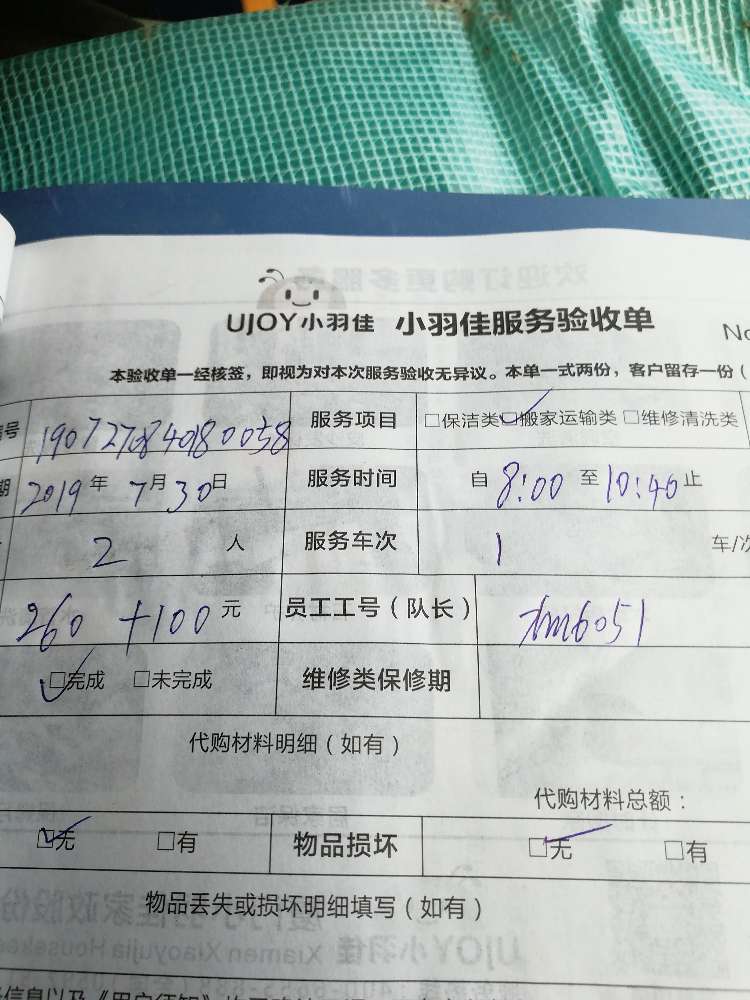 UJOY小羽佳 小羽佳服务验收单 No
本验收单一经核签，即视为对本次服务验收无异议。本单一式两份，客户留存一份（
号 190727084080058 服务项目 □保洁类 □搬家运输类 □维修清洗类
期 2019年 7月30日 服务时间 自 8:00 至 10:40 止
2 人 服务车次 1 车/次
260 +100 元 员工工号（队长） xm6051
□完成 □未完成 维修类保修期
代购材料明细（如有）
代购材料总额：
□无 □有 物品损坏 □无 □有
物品丢失或损坏明细填写（如有）